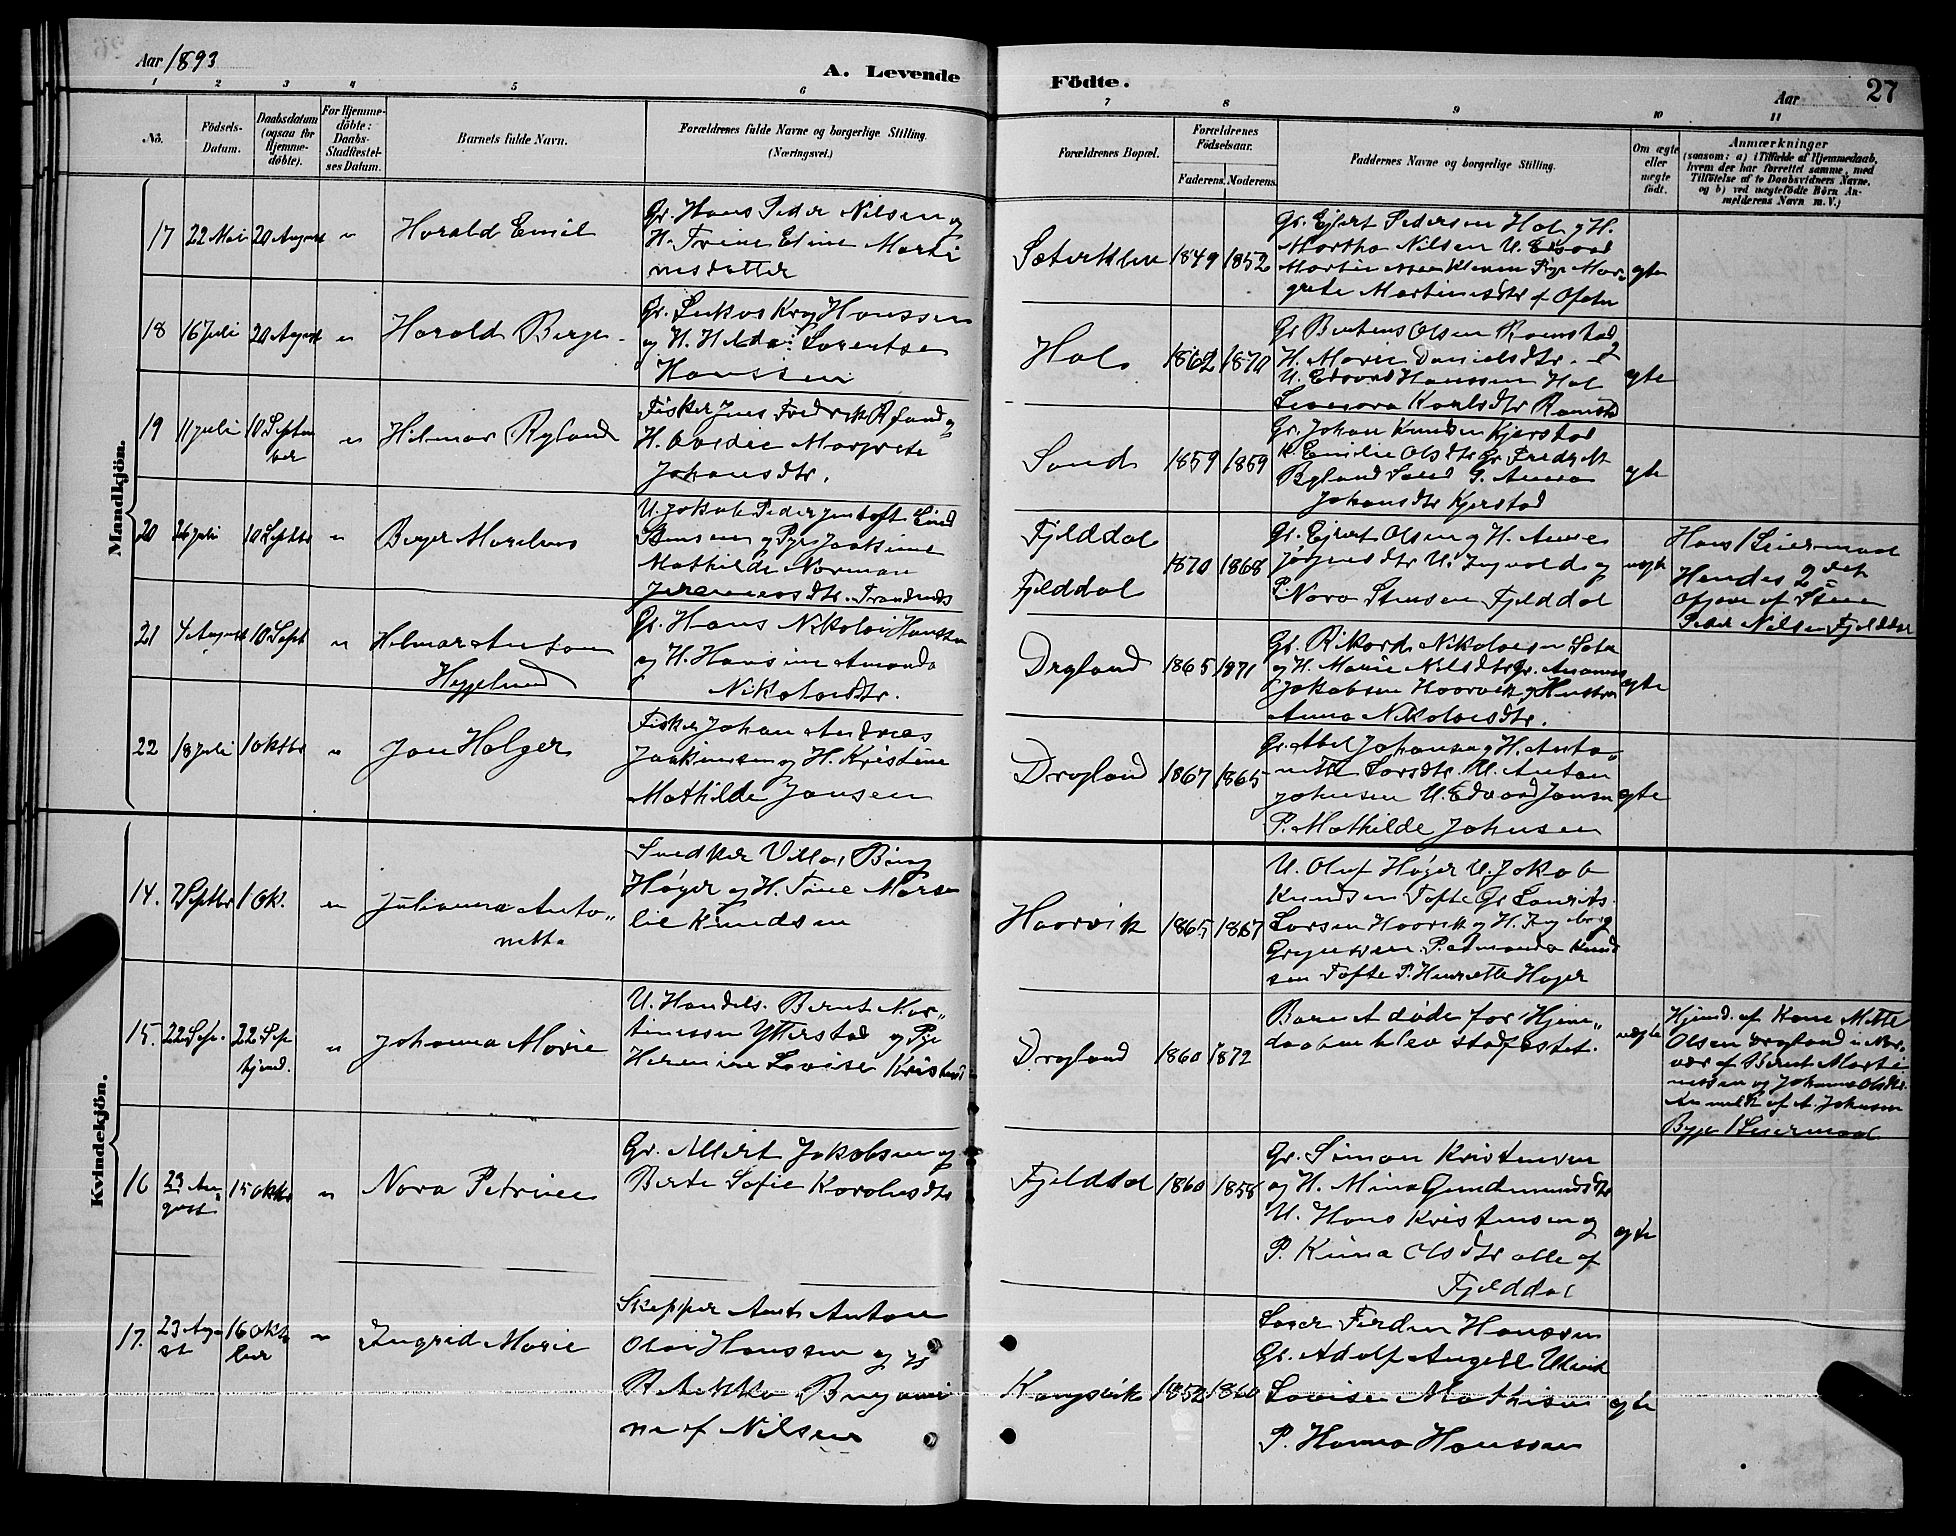 Aar 1893
A. Levende Födte.
Aar 27
1 2 3 4 5 6 7 8 9 10 11
No.
Födsels-Datum.
Daabsdatum (ogsaa for Hjemmedöbte).
For Hjemmedöbte: Daabs-Stadfæstelses Datum.
Barnets fulde Navn.
Forældrenes fulde Navne og borgerlige Stilling. (Næringsvei.)
Forældrenes Bopæl.
Forældrenes Födselsaar.
Faderens. Moderens.
Faddernes Navne og borgerlige Stilling.
Om ægte eller uægte födt.
Anmærkninger
(saasom: a) i Tilfælde af Hjemmedaab, hvem der har forrettet samme, med Tilföielse af to Daabsvidners Navne, og b) ved uægtefödte Börn Anmelderens Navn m. V.)
Mandkjön.
17 22 Mai 20 August " Harald Emil
Gr. Hans Peder Nilsen og
H. Trine Eline Marti
nesdatter
1849 1852
Gr. Ejert Pedersen Hol g H.
Martha Nilsen U.
ægte
18 16 Juli 20 August " Harald Berge
Gr. Lukas Hanssen
og H. Helda Lorentse
Hanssen
Hol 1862 1870
Gr Olsen Ramstad
H. Maren Danielsdtr.
U. Edvard Hanssen Hol
Karlsdtr Ramstad
ægte
19 11 juli 10 Septem
ber " Hilmar Ryland
Fisker Jens Fredrik Ryland og
H. Margrete
Johansdtr.
Sand 1859 1859
Gr. Johan Knudsen Kjerstad
Emilie Olsdtr Gr. Fredrik
Ryland Sand P. Anna
Johansdtr Kjerstad
ægte
20 26 juli 10 Septbr " Berger Marelius
U. Jakob Peder Jentoft
Stensen og Pige Joakime
Mathilde Norman
Jeremiasdtr.
Fjelddal
Fjelddal
1870 1868
Gr. Ejert Olsen g H. Anne
Jörgensdtr U. Ingvald og
P. Nora Stensen Fjelddal
uægte
Hans 1 Leiermaal
Hendes 2det
Opgave af
Peder Nilsen Fjelddal
21 4 August 10 Sept " Helmar Anton
Heggelund
Gr. Hans Nikolai Hanssen
og H. Hansine Amanda
Nikolaisdtr.
Drogland 1865 1871
Gr. Rikard Nikolaisen
og H. Marie Nilsdtr Gr.
Jakobsen Haarvik og Hustru
Anna Nikolaisdtr.
ægte
22 18 juli 1 oktbr " Jan Holger
Fisker Johan Andreas
Joakimsen og H. Kristine
Mathilde Jansen
Drogland 1867 1865
Gr. Abel Johansen g H. Anto
nette Larsdtr. U. Anton
Johnsen U. Edvard Jansen
P. Mathilde Johnsen
ægte
Kvindekjön.
14. 7 Septbr 1 Ok. " Julianna Anto"
nette
Snedker Villas Bing
Høyer og H. Tine
lie Knudsen
Haarvik 1865 1867
U. Oluf Høyer U. Jakob
Knudsen Tofte Gr. Laurits
Larsen Haarvik og H. Ingeborg
P. Amanda Knud
sen Tofte P. Henriette Høyer
15. 22 Sep. 22 Sep
hjemd. " Johanna Marie
U. Handels. Bernt Mar"
tinessen Ytterstad og Pige
Hermine Lovise
Drogland 1860 1872
Barnet døde før Hjem"
daaben blev stadfæstet.
uægte
Hjemd. af Kone Mette
Olsen Drogland i Nær"
vær af Bernt Marti
nessen og Johanna Olsdtr.
Anmeldt af A. Johnsen
Begges 1 Leiermaal
16 29 Au"
gust 15 oktbr " Nora Petrine
Gr. Albert Jakobsen og
Berte Sofie Karolusdtr
Fjelddal 1860 1858
Gr. Simon Kristensen
og H. Mina Gundmundsdtr
U. Hans Kristensen og
P. Olsdtr alle af
Fjelddal
ægte
17. 23 Agu
st 16 okto
ber " Ingrid Marie
Skipper Anton
Olai Hanssen og H
Rebekka Benjami
ne f Nilsen
Kongsvik 1852 1860
Ferdin Hanssen
Gr. Adolf Angell Ulvik
Lovise Mathisen
P. Hanna Hanssen
ægte